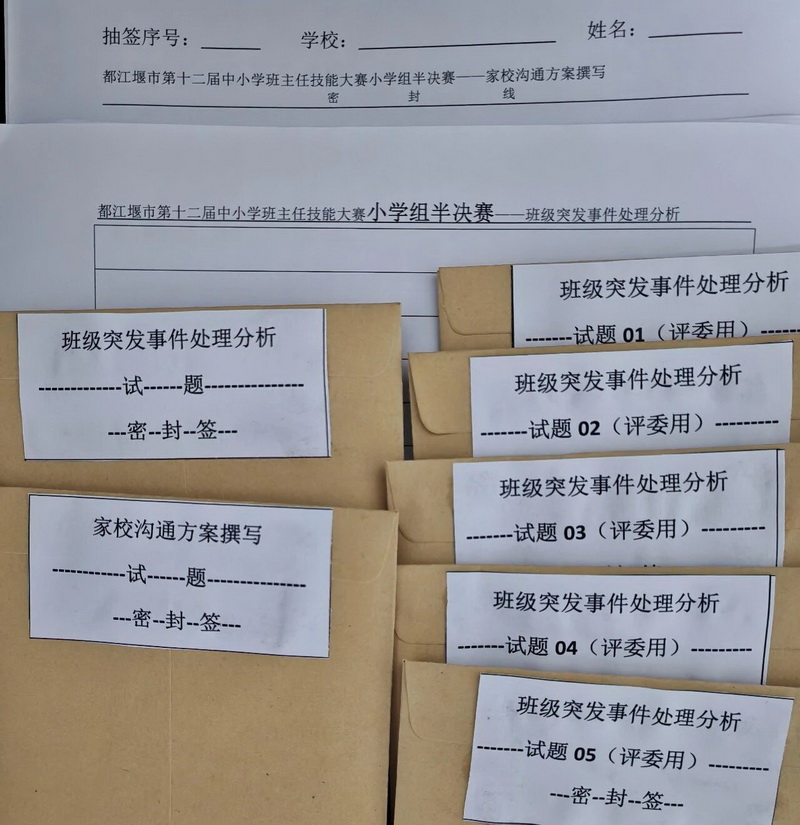 抽签序号：_____ 学校：_______________ 姓名：_______
都江堰市第十二届中小学班主任技能大赛小学组半决赛——家校沟通方案撰写
密 封 线
都江堰市第十二届中小学班主任技能大赛小学组半决赛——班级突发事件处理分析
班级突发事件处理分析
--------------试------题----------------
---密--封--签---
家校沟通方案撰写
------------试------题----------------
---密--封--签---
班级突发事件处理分析
-------试题 01（评委用）------
班级突发事件处理分析
-------试题 02（评委用）----------
班级突发事件处理分析
-------试题 03（评委用）----------
班级突发事件处理分析
-------试题 04（评委用）----------
班级突发事件处理分析
-------试题 05（评委用）----------
---密--封--签---